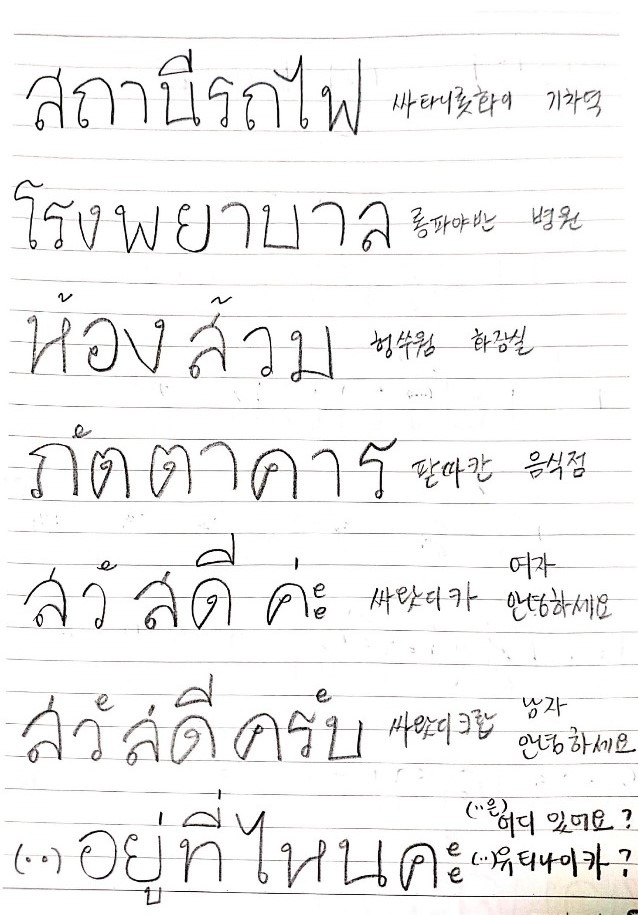 สถานีรถไฟ 싸타니롯화이 기차역
โรงพยาบาล 롱파야반 병원
ห้องส้วม 헝쑤웜 화장실
ภัตตาคาร 팓따칸 음식점
สวัสดีค่ะ 싸왓디카 여자 안녕하세요
สวัสดีครับ 싸왓디크랍 남자 안녕하세요
(..) อยู่ที่ไหนคะ (..은) 어디 있어요? (..) 유티나이카?